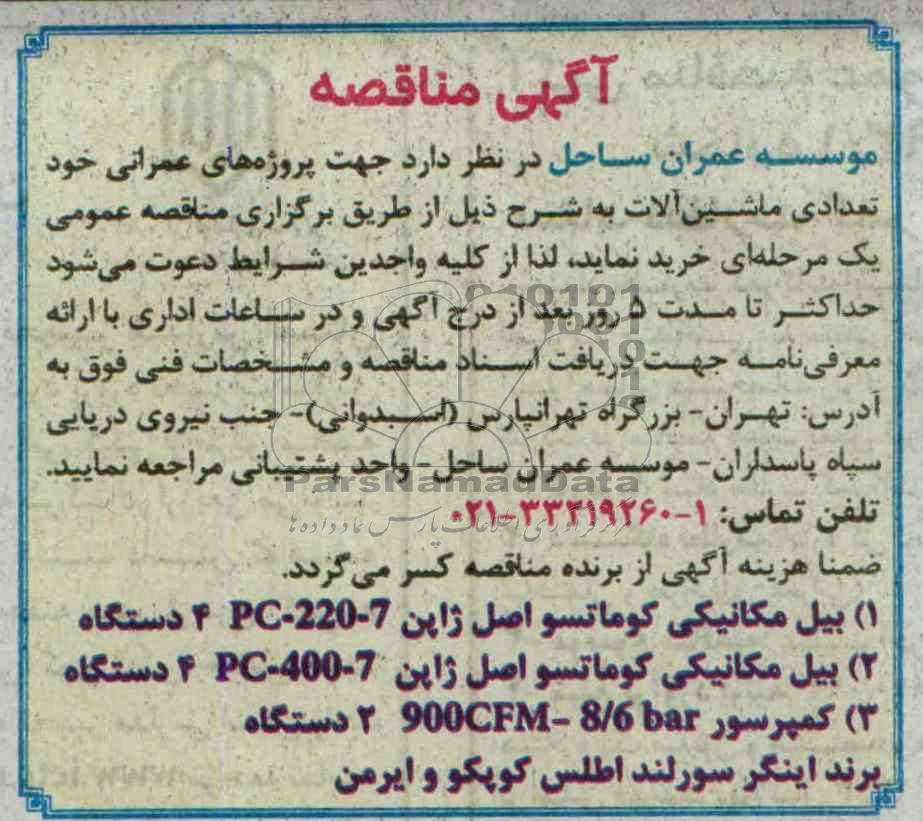 آگهی مناقصه
موسسه عمران ساحل در نظر دارد جهت پروژه‌های عمرانی خود
تعدادی ماشین‌آلات به شرح ذیل از طریق برگزاری مناقصه عمومی
یک مرحله‌ای خرید نماید، لذا از کلیه واجدین شرایط دعوت می‌شود
حداکثر تا مدت ۵ روز بعد از درج آگهی و در ساعات اداری با ارائه
معرفی‌نامه جهت دریافت اسناد مناقصه و مشخصات فنی فوق به
آدرس: تهران- بزرگراه تهرانپارس (اسبدوانی)- جنب نیروی دریایی
سپاه پاسداران- موسسه عمران ساحل- واحد پشتیبانی مراجعه نمایید.
ParsNamadData
تلفن تماس: ۱-۰۲۱-۳۳۲۱۹۲۶۰
ضمنا هزینه آگهی از برنده مناقصه کسر می‌گردد.
۱) بیل مکانیکی کوماتسو اصل ژاپن PC-220-7 ۴ دستگاه
۲) بیل مکانیکی کوماتسو اصل ژاپن PC-400-7 ۴ دستگاه
۳) کمپرسور 900CFM- 8/6 bar ۲ دستگاه
برند اینگر سورلند اطلس کوپکو و ایرمن